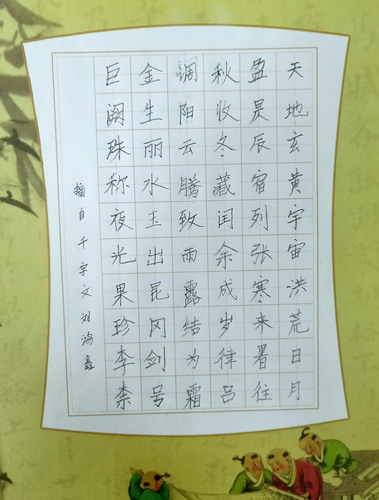 天地玄黄宇宙洪荒日月
盈昃辰宿列张寒来暑往
秋收冬藏闰余成岁律吕
调阳云腾致雨露结为霜
金生丽水玉出昆冈剑号
巨阙珠称夜光果珍李柰
摘自千字文刘鸿鑫